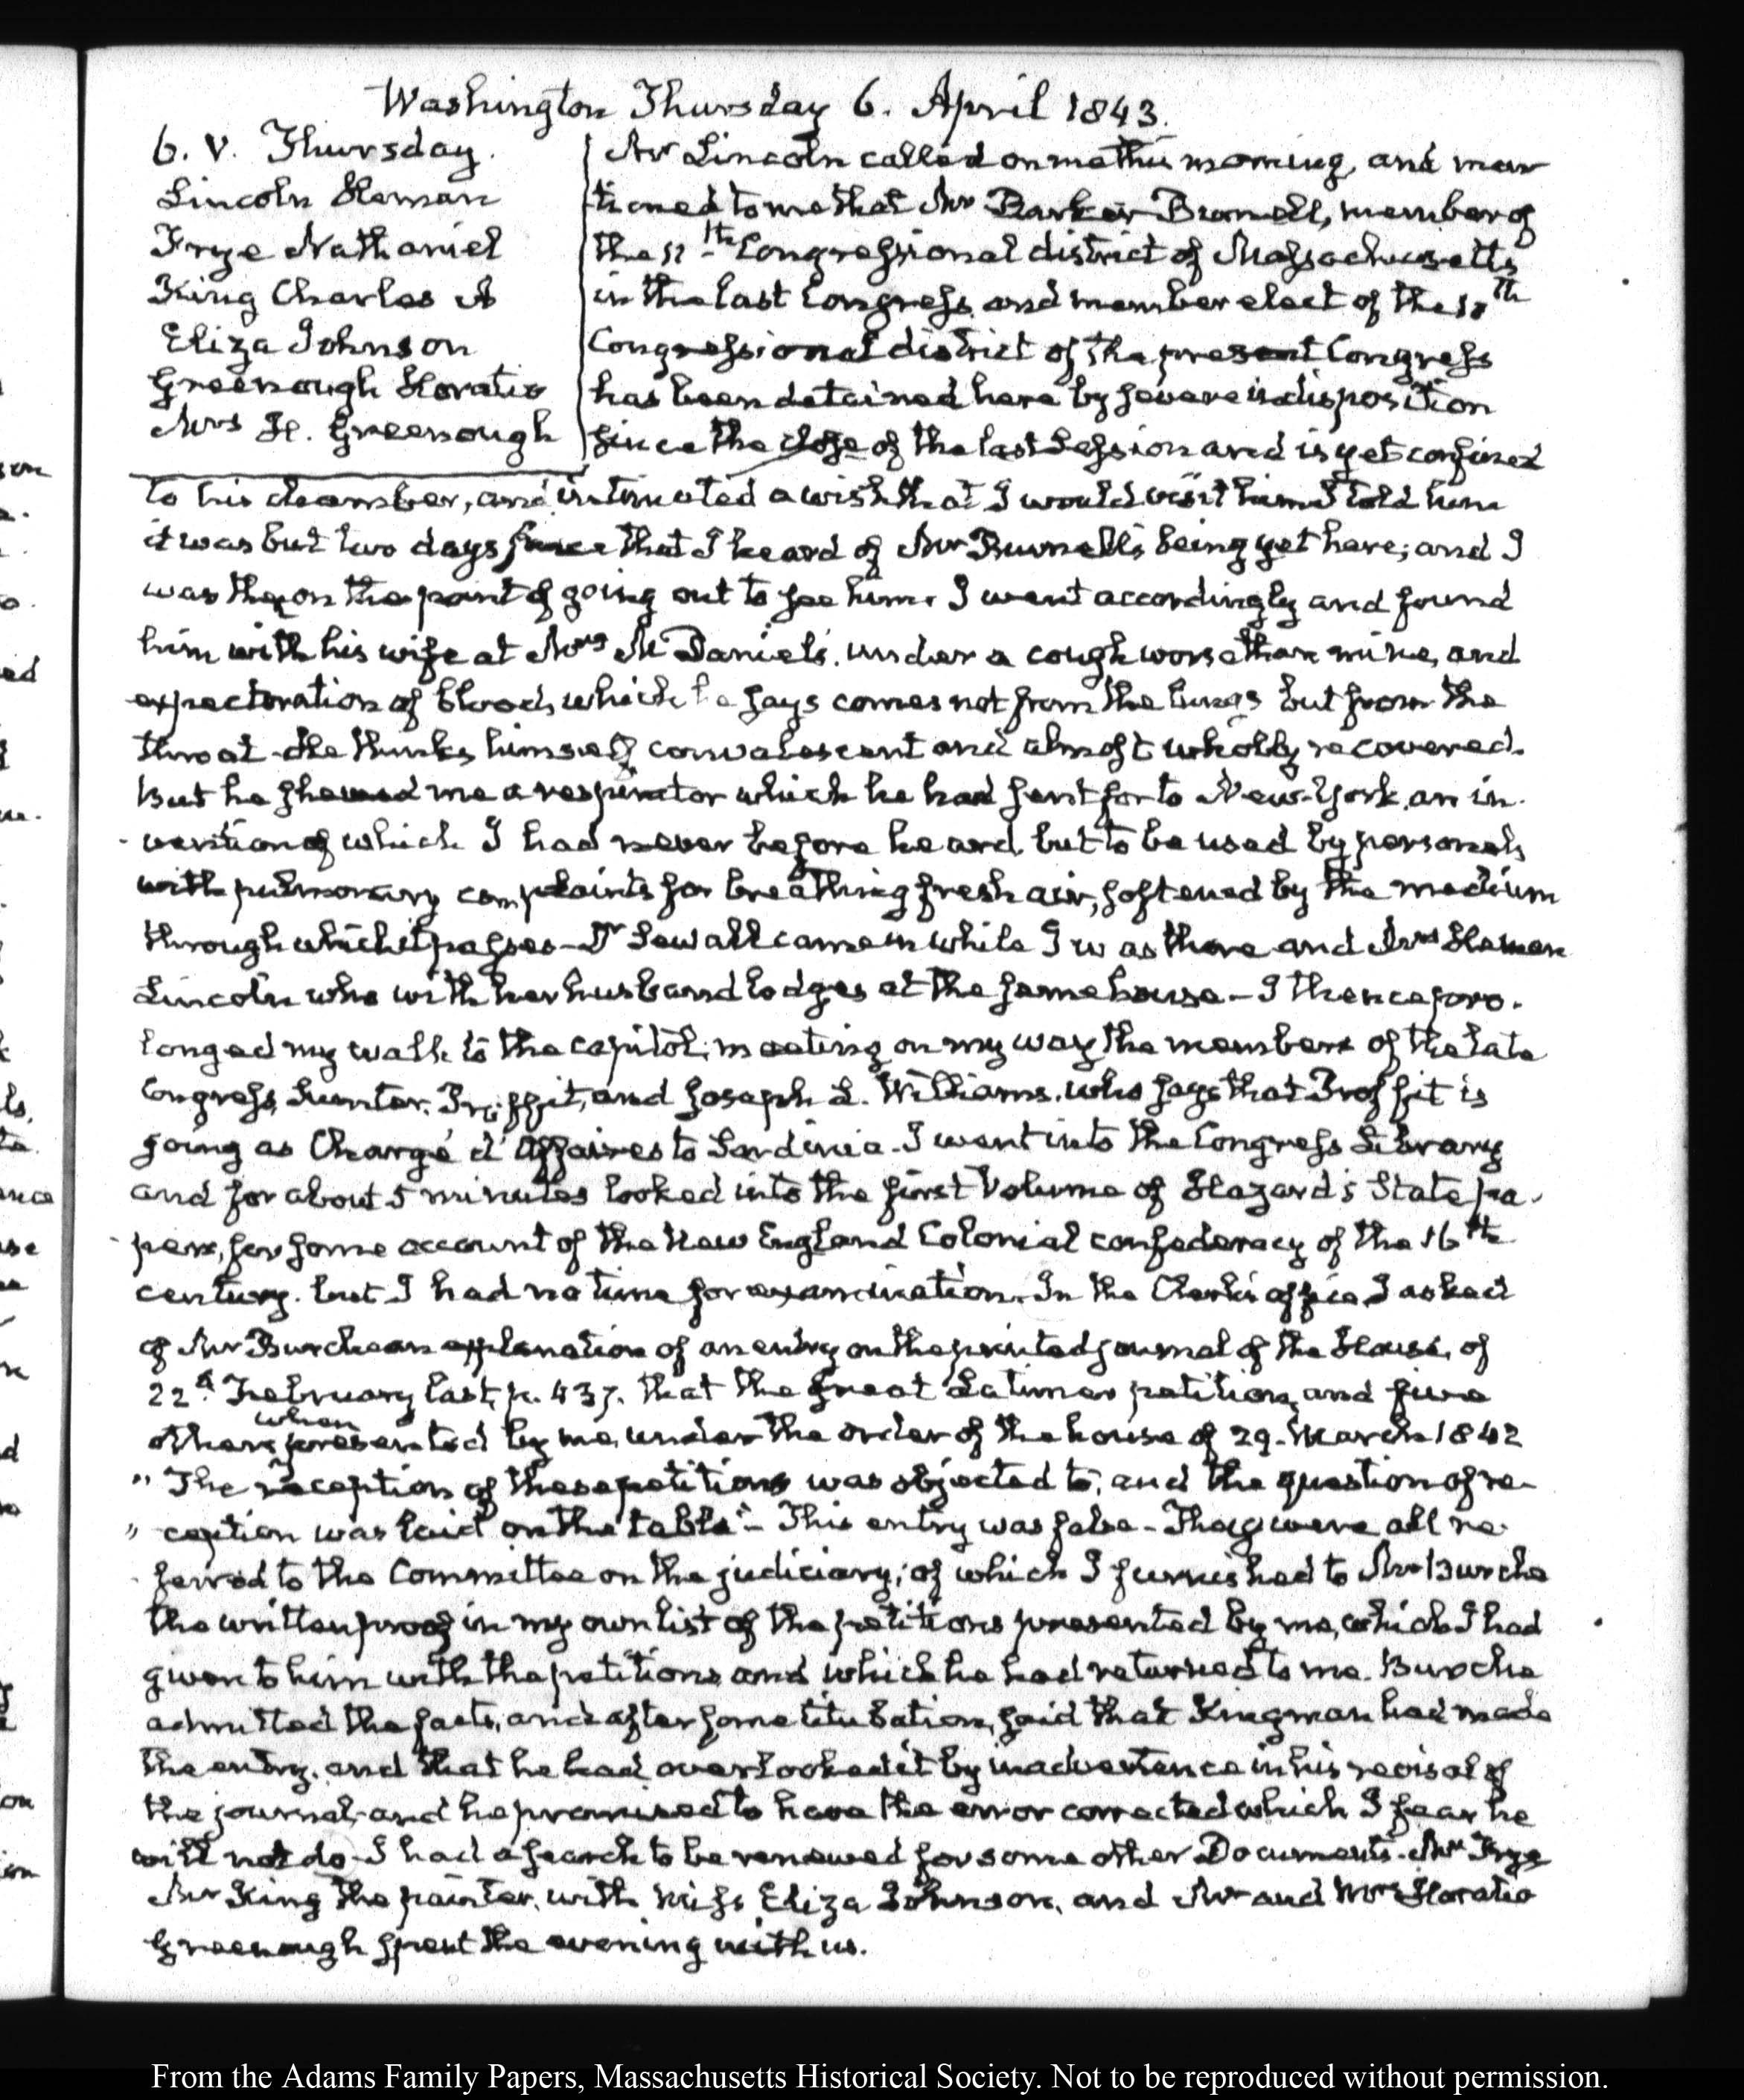 Washington Thursday 6. April 1843.
6. V. Thursday.
Lincoln Heman
Frye Nathaniel
King Charles B
Eliza Johnson
Greenough Horatio
Mrs H. Greenough
Mr Lincoln called on me this morning, and men
tioned to me that Mr Barker Burnell, member of
the 11th Congressional district of Massachusetts
in the last Congress, and member elect of the 10th
Congressional district of the present Congress
has been detained here by severe indisposition
since the close of the last Session and is yet confined
to his chamber, and intimated a wish that I would visit him I told him
it was but two days since that I heard of Mr Burnell's being yet here; and I
was then on the point of going out to see him. I went accordingly and found
him with his wife at Mrs McDaniel's, under a cough worse than mine, and
expectoration of blood, which he says comes not from the lungs but from the
throat - He thinks himself convalescent and almost wholly recovered.
But he shewed me a respirator which he had sent for to New-York, an in-
vention of which I had never before heard, but to be used by persons
with pulmonary complaints for breathing fresh air, softened by the medium
through which it passes - Dr Sewall came in while I was there and Mrs Heman
Lincoln who with her husband lodges at the same house - I thence pro-
longed my walk to the Capitol; meeting on my way the members of the late
Congress, Sumter, Proffit, and Joseph L. Williams, who says that Proffit is
going as Chargé d'Affaires to Sardinia - I went into the Congress Library
and for about 5 minutes looked into the first Volume of Hazard's State pa-
pers, for some account of the New England Colonial confederacy of the 16th
century. but I had no time for examination. In the Clerk's office, I asked
of Mr Burche an explanation of an entry on the printed journal of the House, of
22d February last, p. 437. that the great Latimer petition, and five
others when presented by me, under the order of the house of 29. March 1842
"The reception of these petitions was objected to; and the question of re-
" ception was laid on the table" - This entry was false - They were all re-
ferred to the Committee on the judiciary; of which I furnished to Mr Burche
the written proof in my own list of the petitions presented by me, which I had
given to him with the petitions and which he had returned to me. Burche
admitted the facts, and after some titubation, said that Kingman had made
the entry, and that he had overlooked it by inadvertence in his revisal of
the journal, and he promised to have the error corrected which I fear he
will not do - I had a search to be renewed for some other Documents. Mr Frye
Mr King the painter, with Miss Eliza Johnson, and Mr and Mrs Horatio
Greenough spent the evening with us.
From the Adams Family Papers, Massachusetts Historical Society. Not to be reproduced without permission.